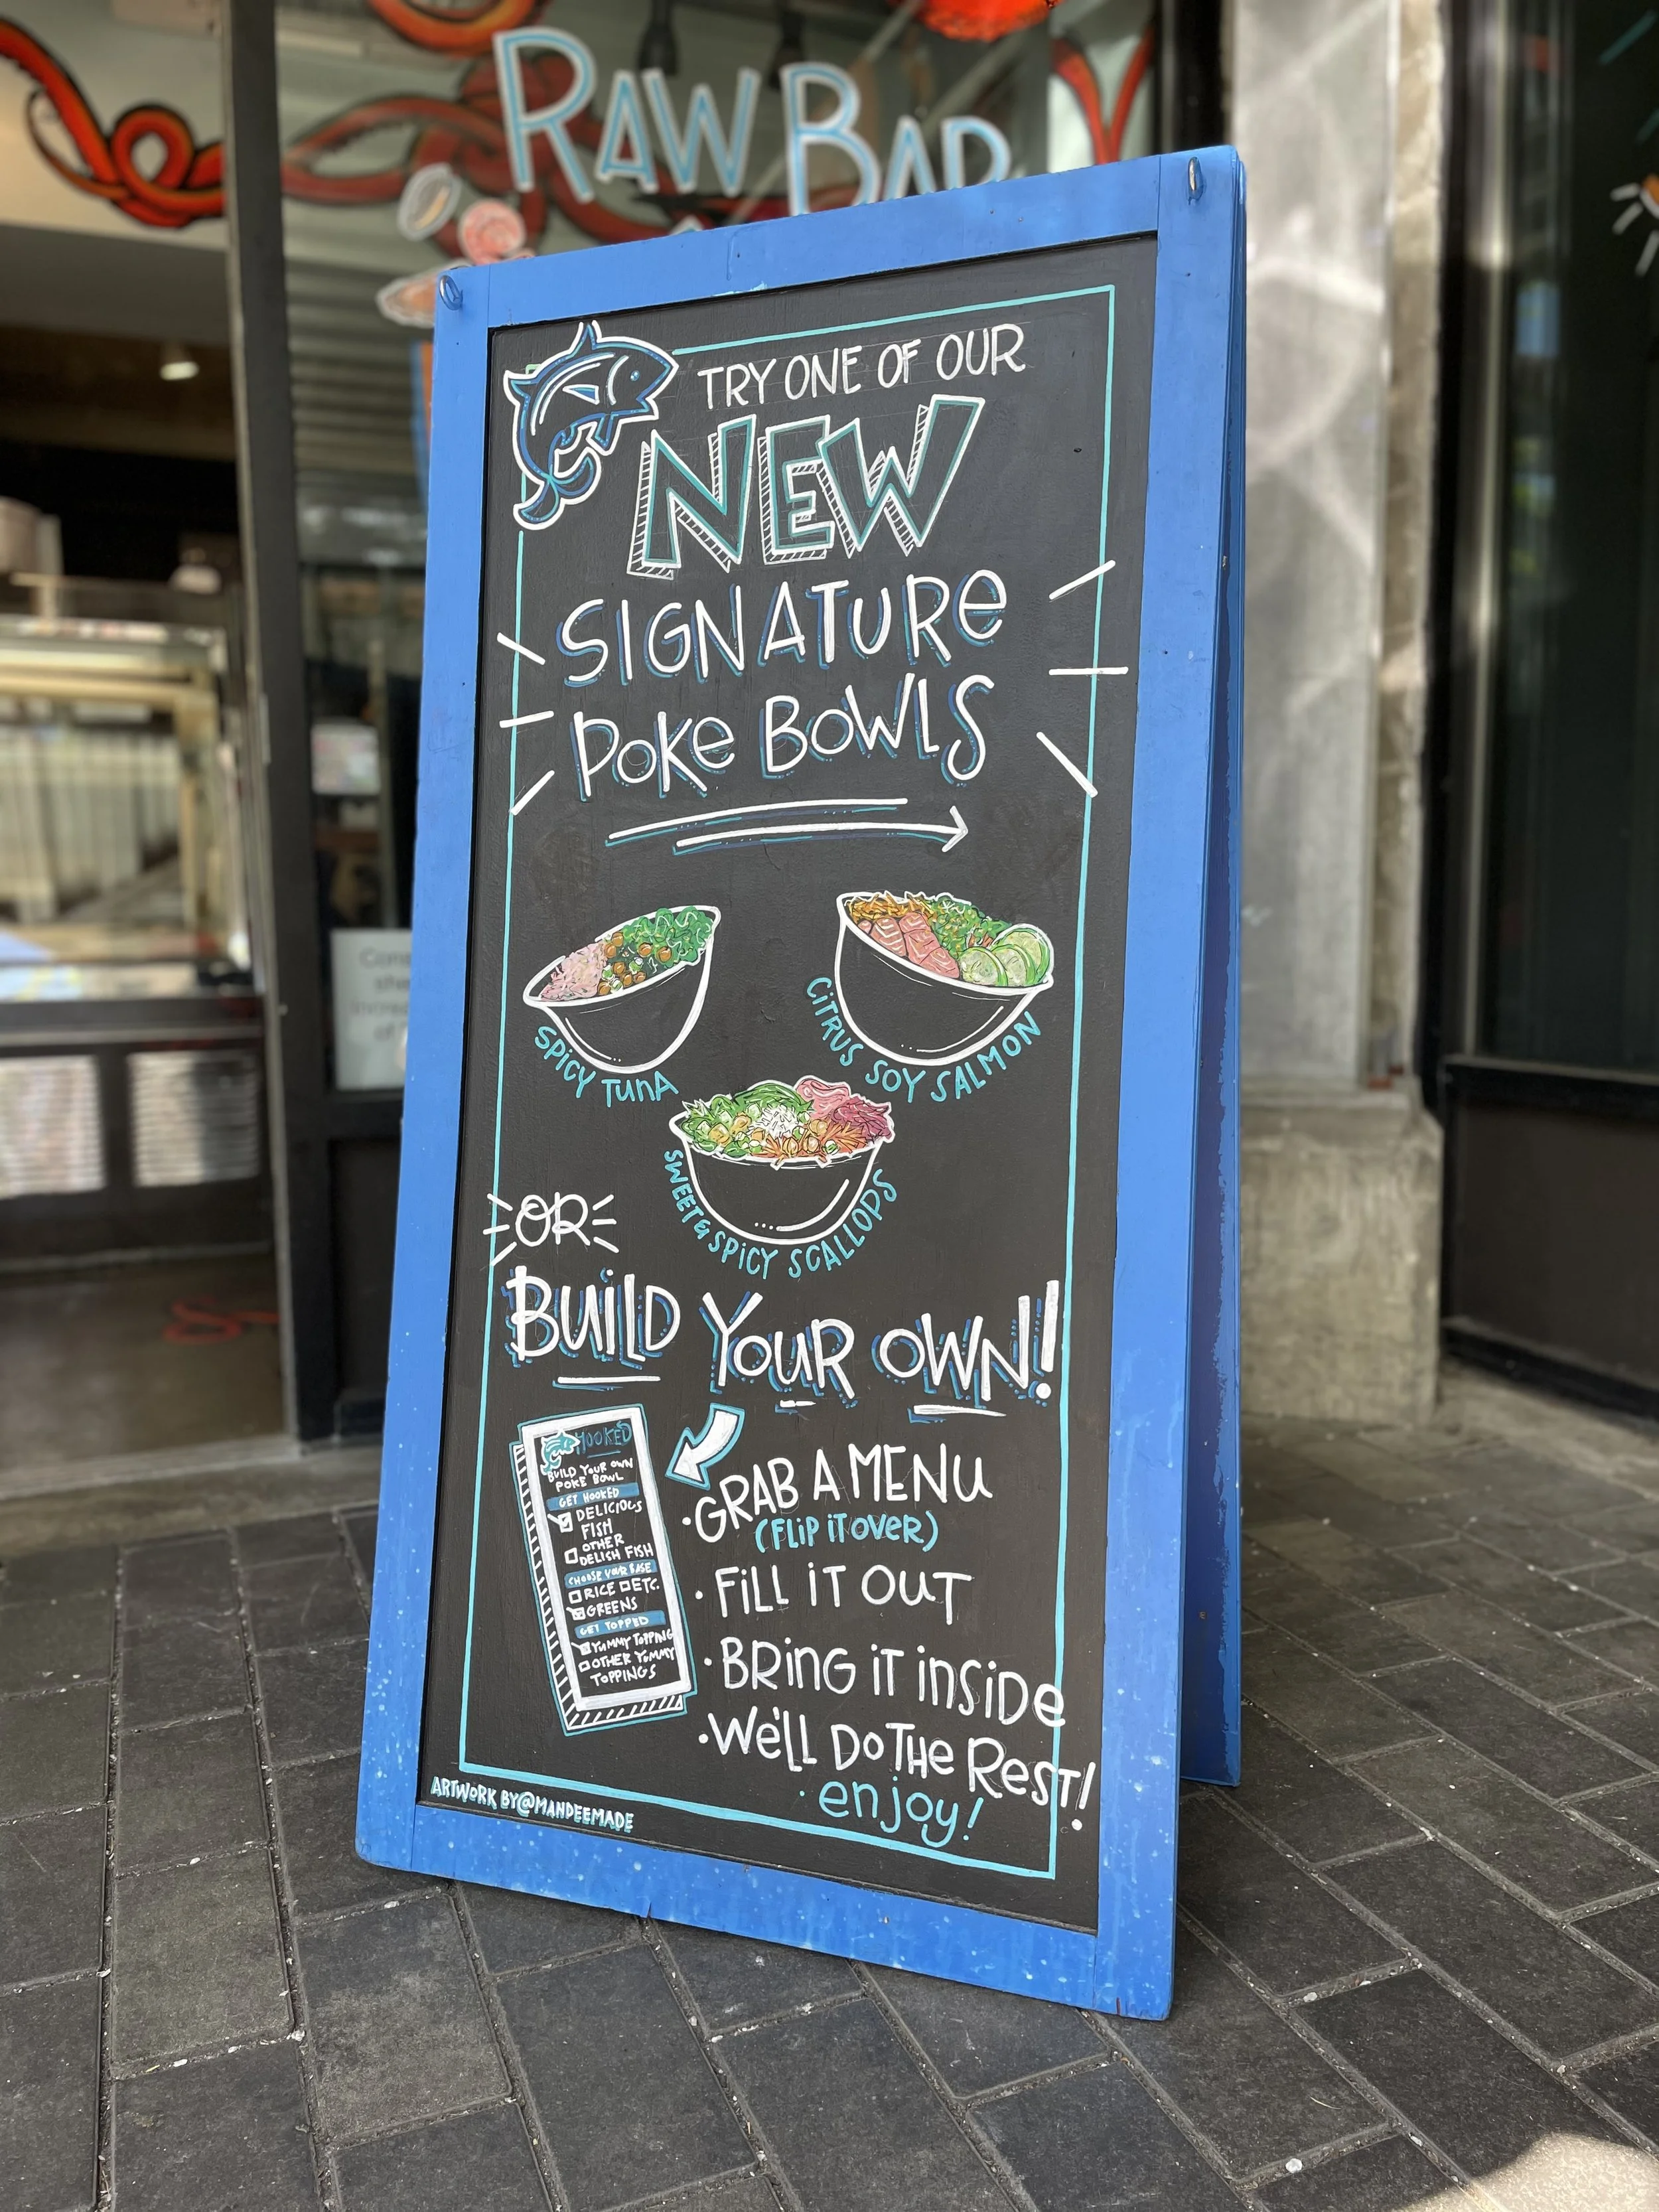 RAW BAR
TRY ONE OF OUR
NEW
SIGNATURE
POKE BOWLS
SPICY TUNA
CITRUS SOY SALMON
SWEET & SPICY SCALLOPS
OR
BUILD YOUR OWN!
HOOKED
BUILD YOUR OWN
POKE BOWL
GET HOOKED
DELICIOUS
FISH
OTHER
DELISH FISH
CHOOSE YOUR BASE
RICE ETC.
GREENS
GET TOPPED
YUMMY TOPPING
OTHER YUMMY
TOPPINGS
• GRAB A MENU
(FLIP IT OVER)
• FILL IT OUT
• BRING IT INSIDE
• WE'LL DO THE REST!
• enjoy!
ARTWORK BY @MANDEEMADE